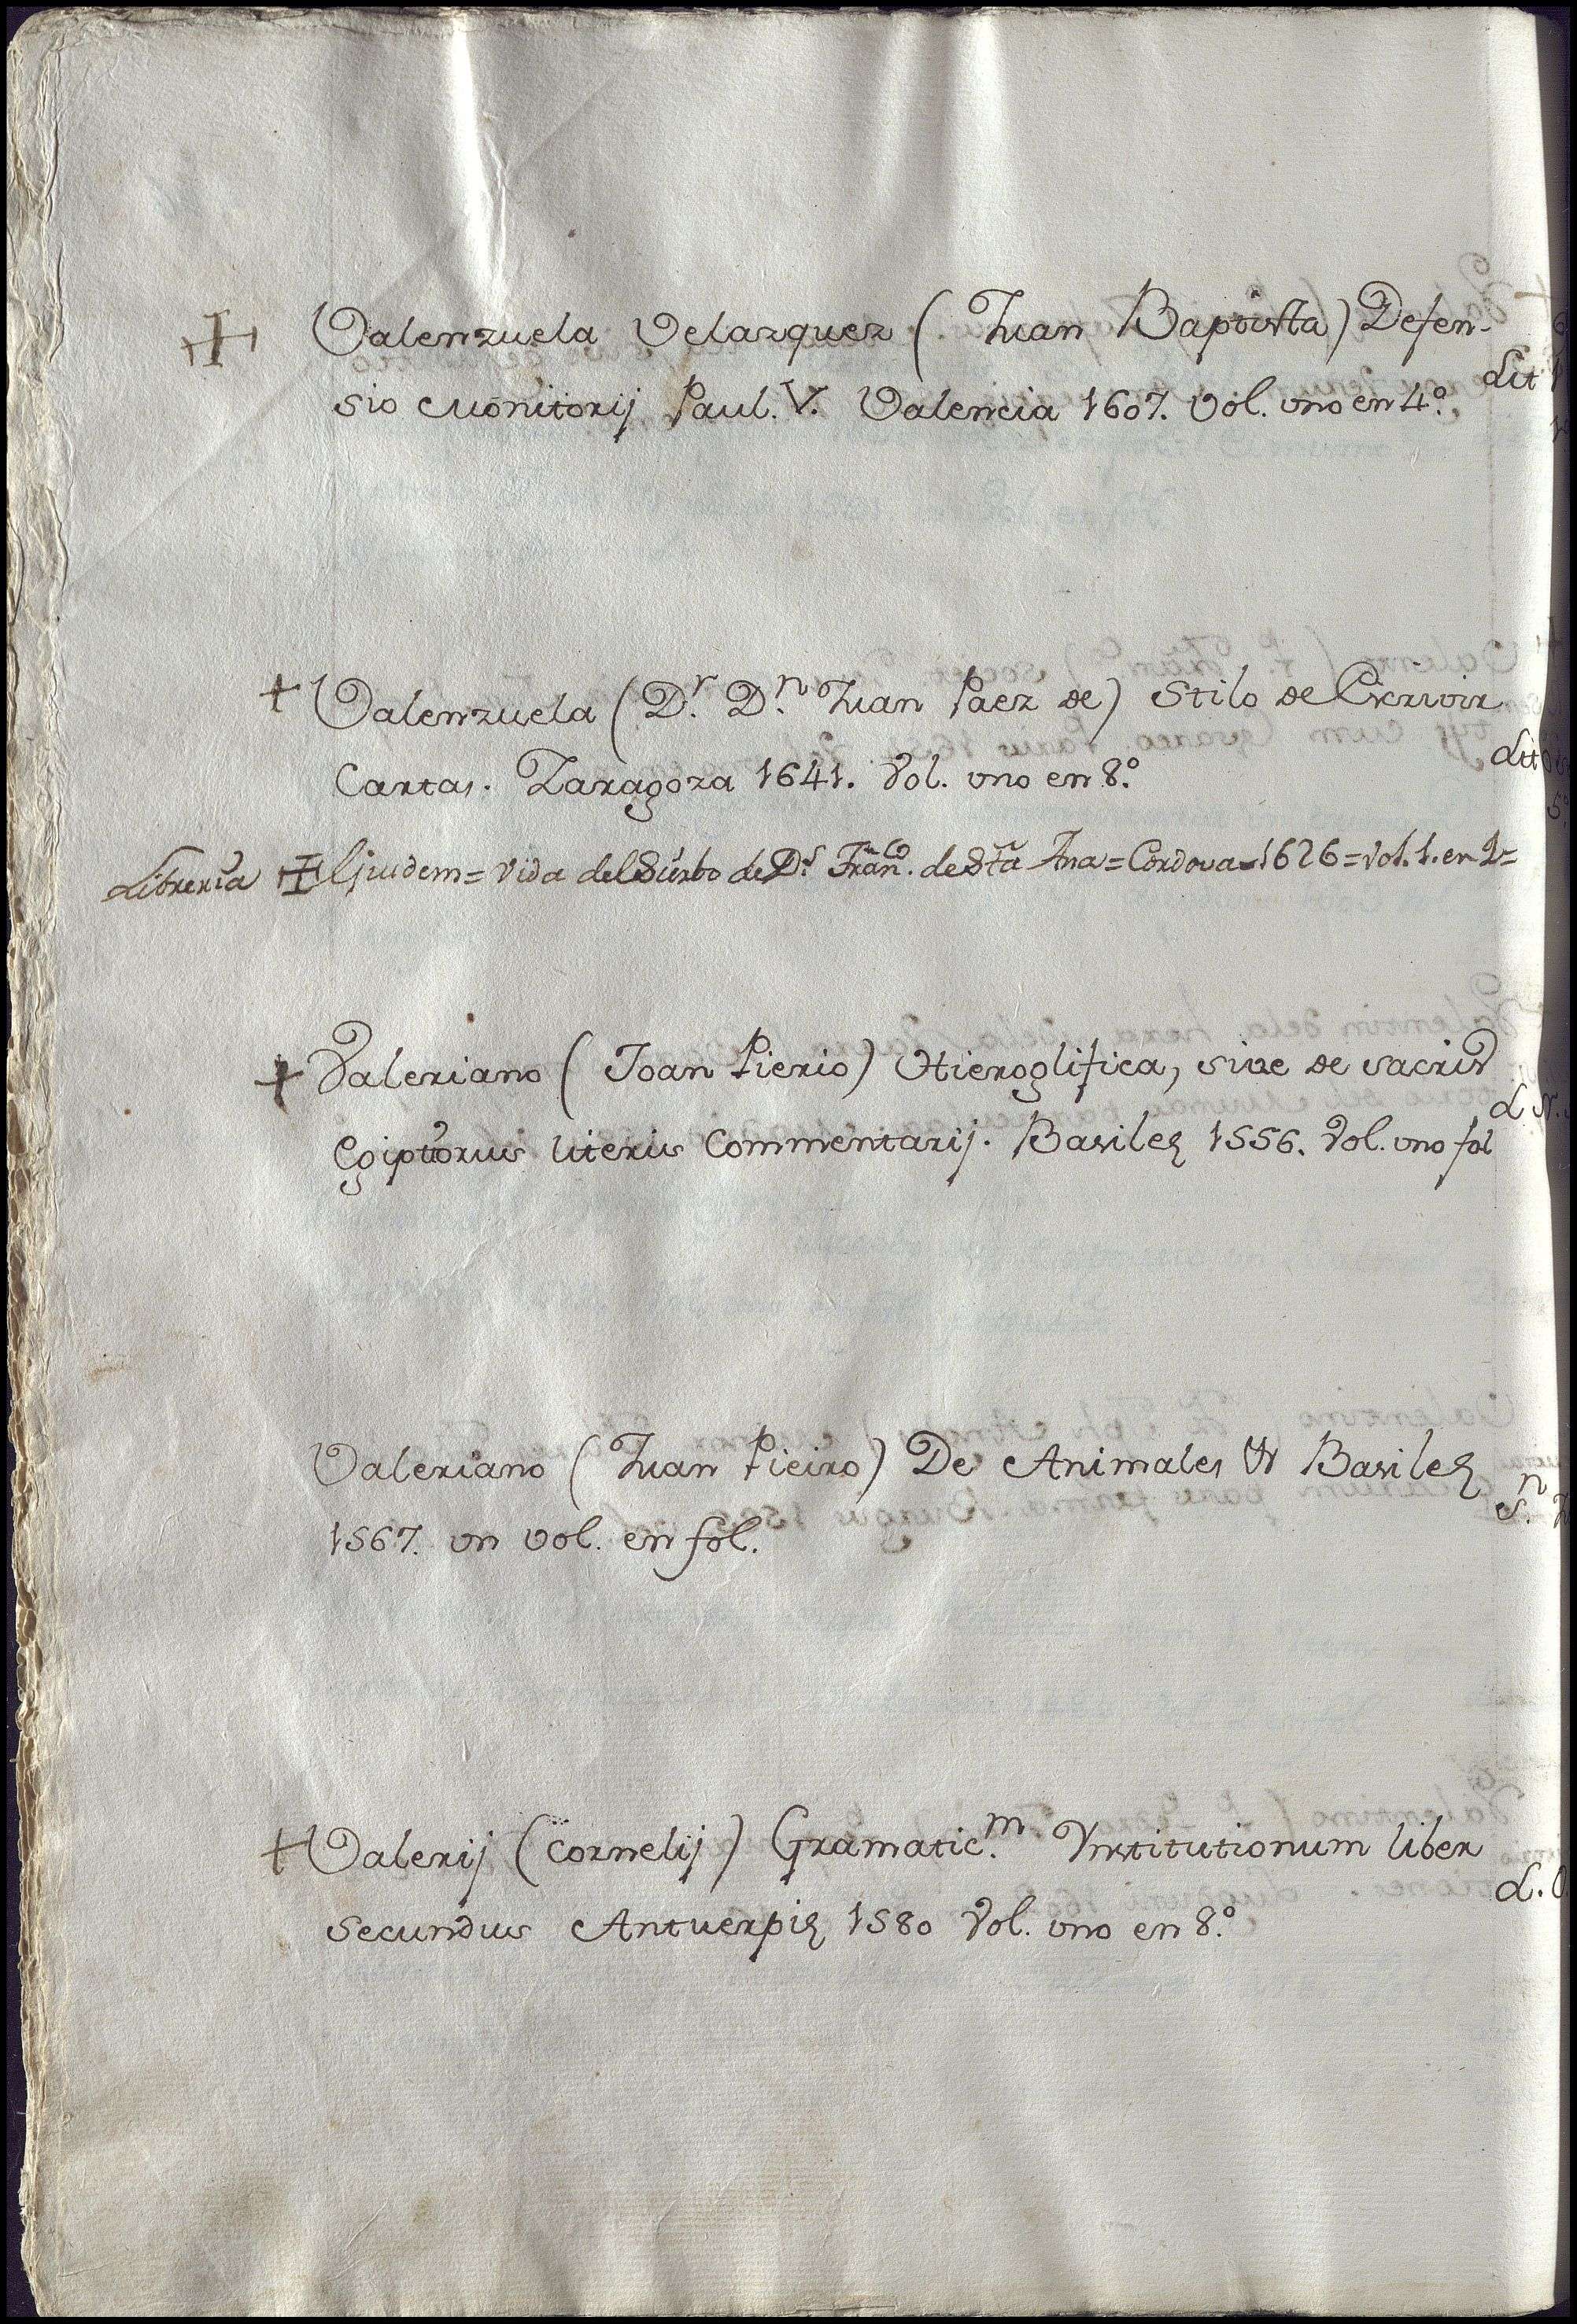 Valenzuela Velazquez (Juan Baptista) Defen-
sio Monitorij Paul. V. Valencia 1607. Vol. vno en 4.º
Lit
+ Valenzuela (D.r D.n Juan Paez de) Stilo de Escrivir
Cartas. Zaragoza 1641. Vol. vno en 8.º
Lit
Libreria Ejusdem = Vida del de D.n Fran.co de Sta Ana = Cordova = 1626 = Vol. 1. en
+ Valeriano (Joan Pierio) Hieroglifica, sive de sacris
Egiptiorus literis Commentarij. Basileę 1556. Vol. vno fol
L. N.
Valeriano (Juan Pieiro) De Animales Basileę
1567. vn vol. en fol.
S.n
+ Valerij (Cornelij) Gramatic.m Ynstitutionum liber
Secundus Antuerpię 1580 Vol. vno en 8.º
L.